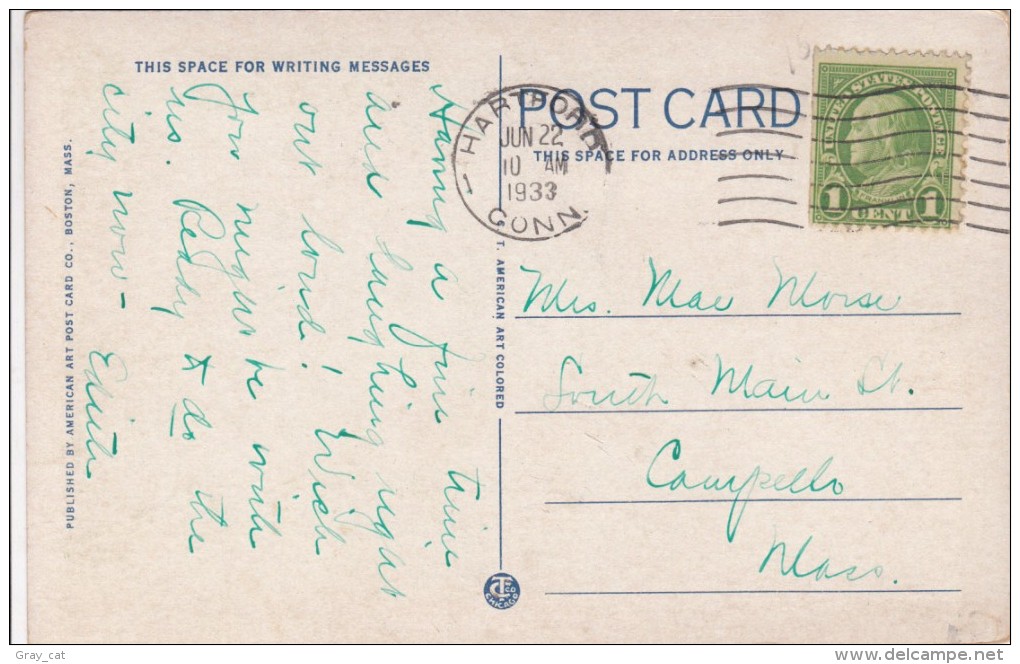 THIS SPACE FOR WRITING MESSAGES
POST CARD
THIS SPACE FOR ADDRESS ONLY
HARTFORD
JUN 22
10 AM
1933
CONN.
UNITED STATES POSTAGE
FRANKLIN
1 CENT 1
Having a fine time
and laughing right
out loud! Wish
you might be with
us. Ready to do the
city now—
Edith
Mrs. Mae Morse
South Main St.
Campello
Mass.
PUBLISHED BY AMERICAN ART POST CARD CO., BOSTON, MASS.
C. T. AMERICAN ART COLORED
CT CO
CHICAGO
Gray_cat